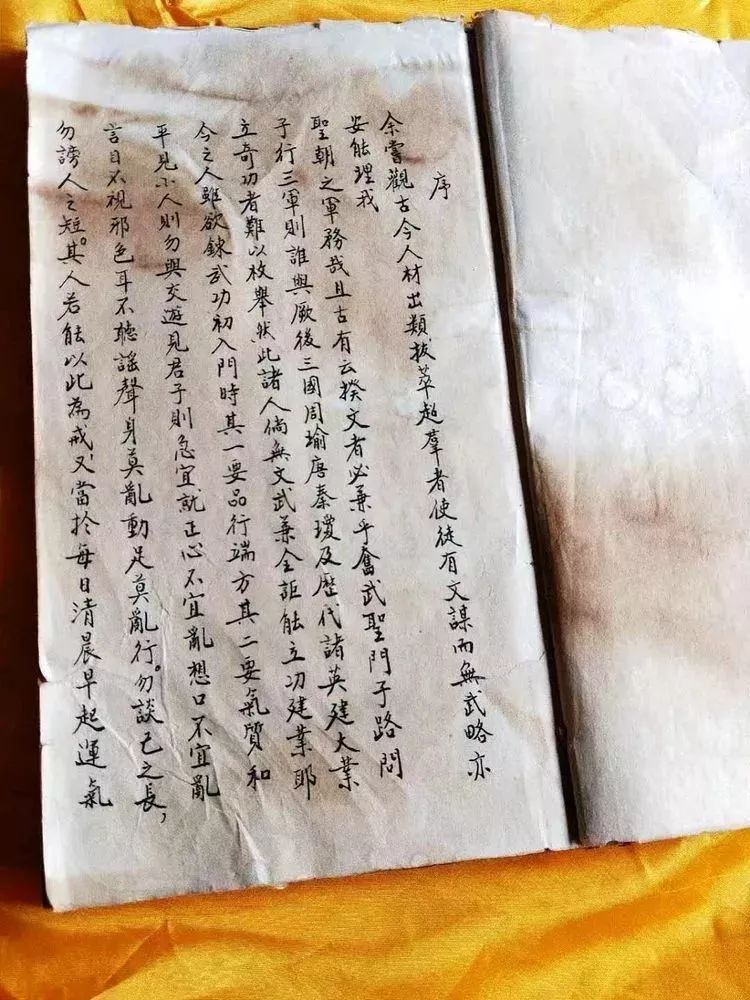 序
余嘗觀古今人材出類拔萃超羣者使徒有文謀而無武略亦
安能理我
聖朝之軍務哉且古有云揆文者必兼乎奮武聖門子路問
子行三軍則誰與厥後三國周瑜唐秦瓊及歷代諸英建大業
立奇功者難以枚舉然此諸人倘無文武兼全詎能立功建業耶
今之人雖欲鍊武功初入門時其一要品行端方其二要氣質和
平見小人則勿與交遊見君子則急宜就正心不宜亂想口不宜亂
言目不視邪色耳不聽謠聲身莫亂動足莫亂行。勿談己之長，
勿謗人之短。其人若能以此為戒又當於每日清晨早起運氣